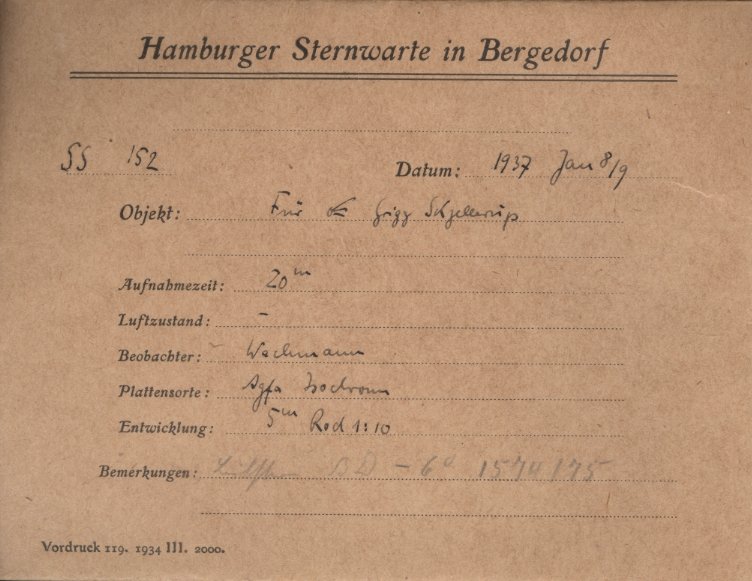 Hamburger Sternwarte in Bergedorf
SS 152
Datum: 1937 Jan 8/9
Objekt: Für Grigg Skjellerup
Aufnahmezeit: 20m
Luftzustand: –
Beobachter: Wachmann
Plattensorte: Agfa Isochrom
Entwicklung: 5m Rod 1:10
Bemerkungen: BD – 6° 1574/75
Vordruck 119. 1934 III. 2000.